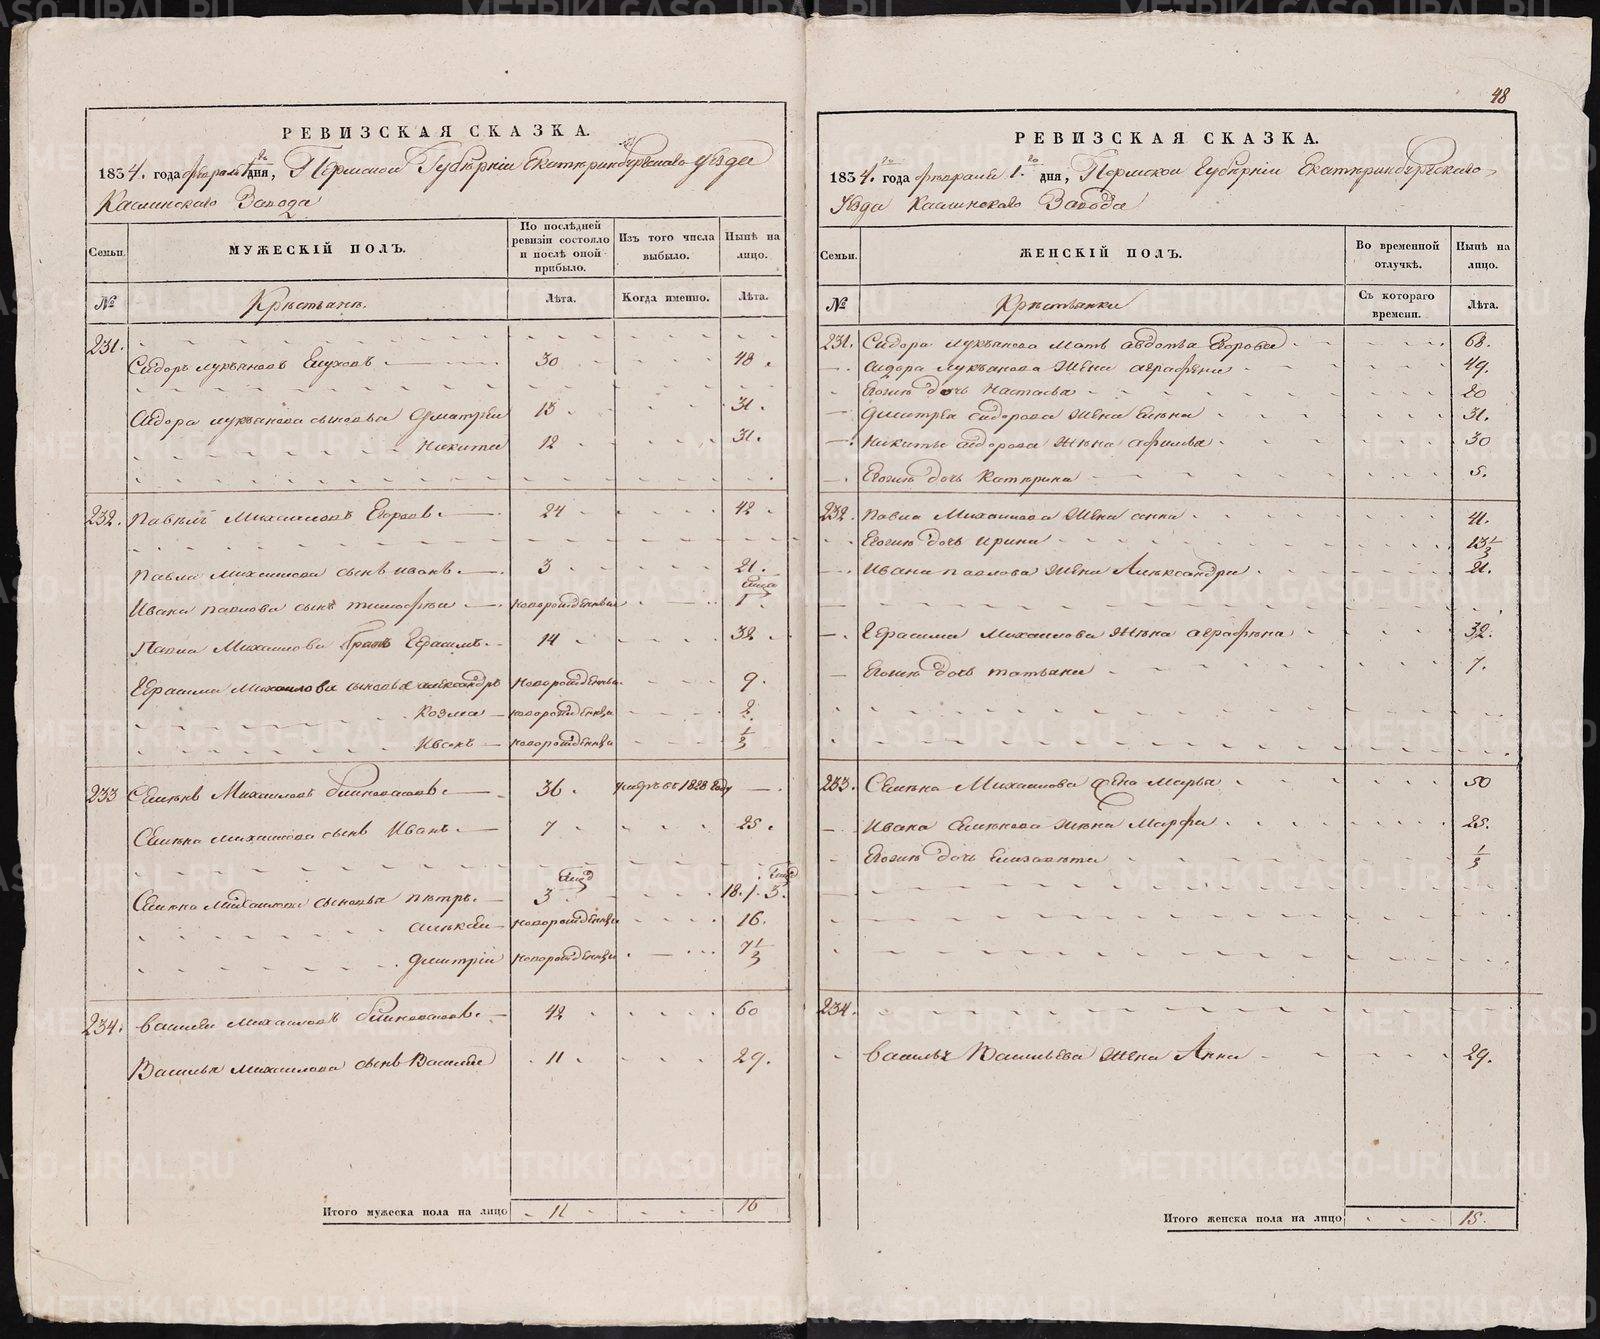 48
РЕВИЗСКАЯ СКАЗКА.
1834. года февраля 1го дня, Пермской Губернiи Екатеринбургскаго уезда
Каслинскаго Завода
Семьи.
МУЖЕСКIЙ ПОЛЪ.
По послѣдней ревизiи состояло и послѣ оной прибыло.
Изъ того числа выбыло.
Нынѣ на лицо.
№
Крестьяне.
Лѣта.
Когда именно.
Лѣта.
231.
Сидоръ лукьяновъ 30 48.
Сидора лукьянова сыновья Дмитрей 13 31.
Никита 12 31.
232. Павелъ Михаиловъ Егоровъ. 24 42
Павла Михаилова сынъ иванъ. 3 21.
Ивана павлова сынъ тимофеи новорожденныи 1
Павла Михаилова братъ Герасимъ. 14 32
Герасима Михаилова сыновья александръ новорожденныи 9.
Козма новорожденныи 2
Иванъ новорожденныи 1/3
233 Семенъ Михаиловъ 36. умеръ въ 1828 году
Семена михаилова сынъ Иванъ. 7 25.
Семена Михаилова сыновья петръ. 3 18.
алексеи новорожденныи 16.
дмитрiи новорожденныи 7 1/3
234. василеи михаиловъ 42 60
Василья михаилова сынъ Василеи 11 29.
Итого мужеска пола на лицо 11 16
РЕВИЗСКАЯ СКАЗКА.
1834. года февраля 1.го дня, Пермской Губернiи Екатеринбургскаго
Уезда Каслинскаго Завода
Семьи.
ЖЕНСКIЙ ПОЛЪ.
Во временной отлучкѣ.
Нынѣ на лицо.
№
Крестьянки
Съ котораго времени.
Лѣта.
231. Сидора лукьянова мать авдотья Егорова 68.
сидора лукьянова жена аграфена 49.
Егоже дочь настасья 20
дмитрея сидорова жена елена 31.
никиты сидорова жена 30
Егоже дочь катерина 5.
232. Павла Михаилова жена анна 41.
Егоже дочь ирина 13 1/2
Ивана павлова жена Александра 21.
Герасима михаилова жена аграфена 32.
Егоже дочь татьяна 7.
233. Семена Михаилова жена марья 50
Ивана семенова жена марфа 25.
Егоже дочь елизавета 1/3
234.
василья Васильева жена Анна 29.
Итого женска пола на лицо 15.
METRIKI.GASO-URAL.RU